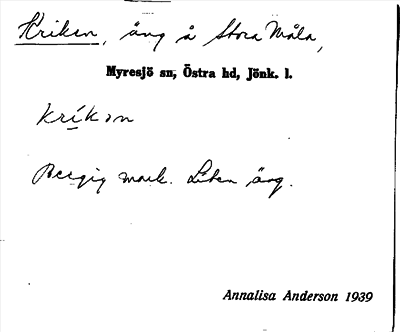 Kriken, äng å Stora Måla,
Myresjö sn, Östra hd, Jönk. l.
kríkon
Bergig mark. Liten äng.
Annalisa Anderson 1939